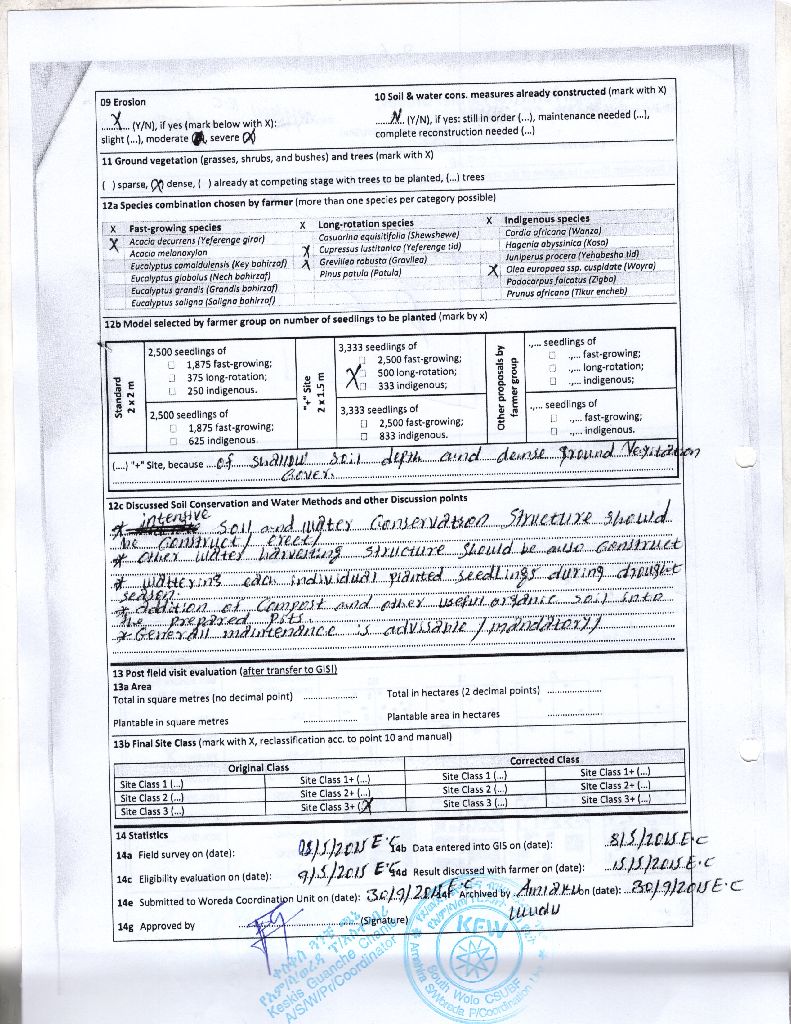 09 Erosion
10 Soil & water cons. measures already constructed (mark with X)
...X... (Y/N), if yes (mark below with X):
slight (...), moderate (...), severe (X)
...N... (Y/N), if yes: still in order (...), maintenance needed (...),
complete reconstruction needed (...)
11 Ground vegetation (grasses, shrubs, and bushes) and trees (mark with X)
( ) sparse, (X) dense, ( ) already at competing stage with trees to be planted, (...) trees
12a Species combination chosen by farmer (more than one species per category possible)
X Fast-growing species
X Acacia decurrens (Yeferenge girar)
Acacia melanoxylon
Eucalyptus camaldulensis (Key bahirzaf)
Eucalyptus globolus (Nech bahirzaf)
Eucalyptus grandis (Grandis bahirzaf)
Eucalyptus saligna (Saligna bahirzaf)
X Long-rotation species
Casuarina equisitifolia (Shewshewe)
X Cupressus lustitanica (Yeferenge tid)
X Grevillea robusta (Gravilea)
Pinus patula (Patula)
X Indigenous species
Cordia africana (Wanza)
Hagenia abyssinica (Koso)
Juniperus procera (Yehabesha tid)
X Olea europaea ssp. cuspidate (Woyra)
Podocarpus falcatus (Zigba)
Prunus africana (Tikur encheb)
12b Model selected by farmer group on number of seedlings to be planted (mark by x)
Standard
2 x 2 m
2,500 seedlings of
☐ 1,875 fast-growing;
☐ 375 long-rotation;
☐ 250 indigenous.
2,500 seedlings of
☐ 1,875 fast-growing;
☐ 625 indigenous.
"+" Site
2 x 1.5 m
3,333 seedlings of
☐ 2,500 fast-growing;
X 500 long-rotation;
☐ 333 indigenous;
3,333 seedlings of
☐ 2,500 fast-growing;
☐ 833 indigenous.
Other proposals by
farmer group
.,... seedlings of
☐ .,... fast-growing;
☐ .,... long-rotation;
☐ .,... indigenous;
.,... seedlings of
☐ .,... fast-growing;
☐ .,... indigenous.
(...) "+" Site, because ...of shallow soil depth and dense ground Vegitation
Cover.
12c Discussed Soil Conservation and Water Methods and other Discussion points
* intensive soil and water Conservation Structure should
be Construct/ erect/
* other water harvesting structure should be also Construct
* wattering each individual planted seedlings during drought
season.
* addition of Compost and other useful organic soil into
the prepared Pits.
* Generall maintenance is advisable /mandatory/
13 Post field visit evaluation (after transfer to GIS!)
13a Area
Total in square metres (no decimal point) ..................
Total in hectares (2 decimal points) ..................
Plantable in square metres ..................
Plantable area in hectares ..................
13b Final Site Class (mark with X, reclassification acc. to point 10 and manual)
Original Class
Corrected Class
Site Class 1 (...) Site Class 1+ (...) Site Class 1 (...) Site Class 1+ (...)
Site Class 2 (...) Site Class 2+ (...) Site Class 2 (...) Site Class 2+ (...)
Site Class 3 (...) Site Class 3+ (X) Site Class 3 (...) Site Class 3+ (...)
14 Statistics
14a Field survey on (date): 08/5/2015 E.C
14b Data entered into GIS on (date): 8/5/2015 E.C
14c Eligibility evaluation on (date): 9/5/2015 E.C
14d Result discussed with farmer on (date): 15/5/2015 E.C
14e Submitted to Woreda Coordination Unit on (date): 30/9/2015 E.C
14f Archived by on (date): 30/9/2015 E.C
14g Approved by .................. (Signature)
Keskis Guanche Chanie
A/S/W/Pr/Coordinator
KFW
South Wolo CSU/BF